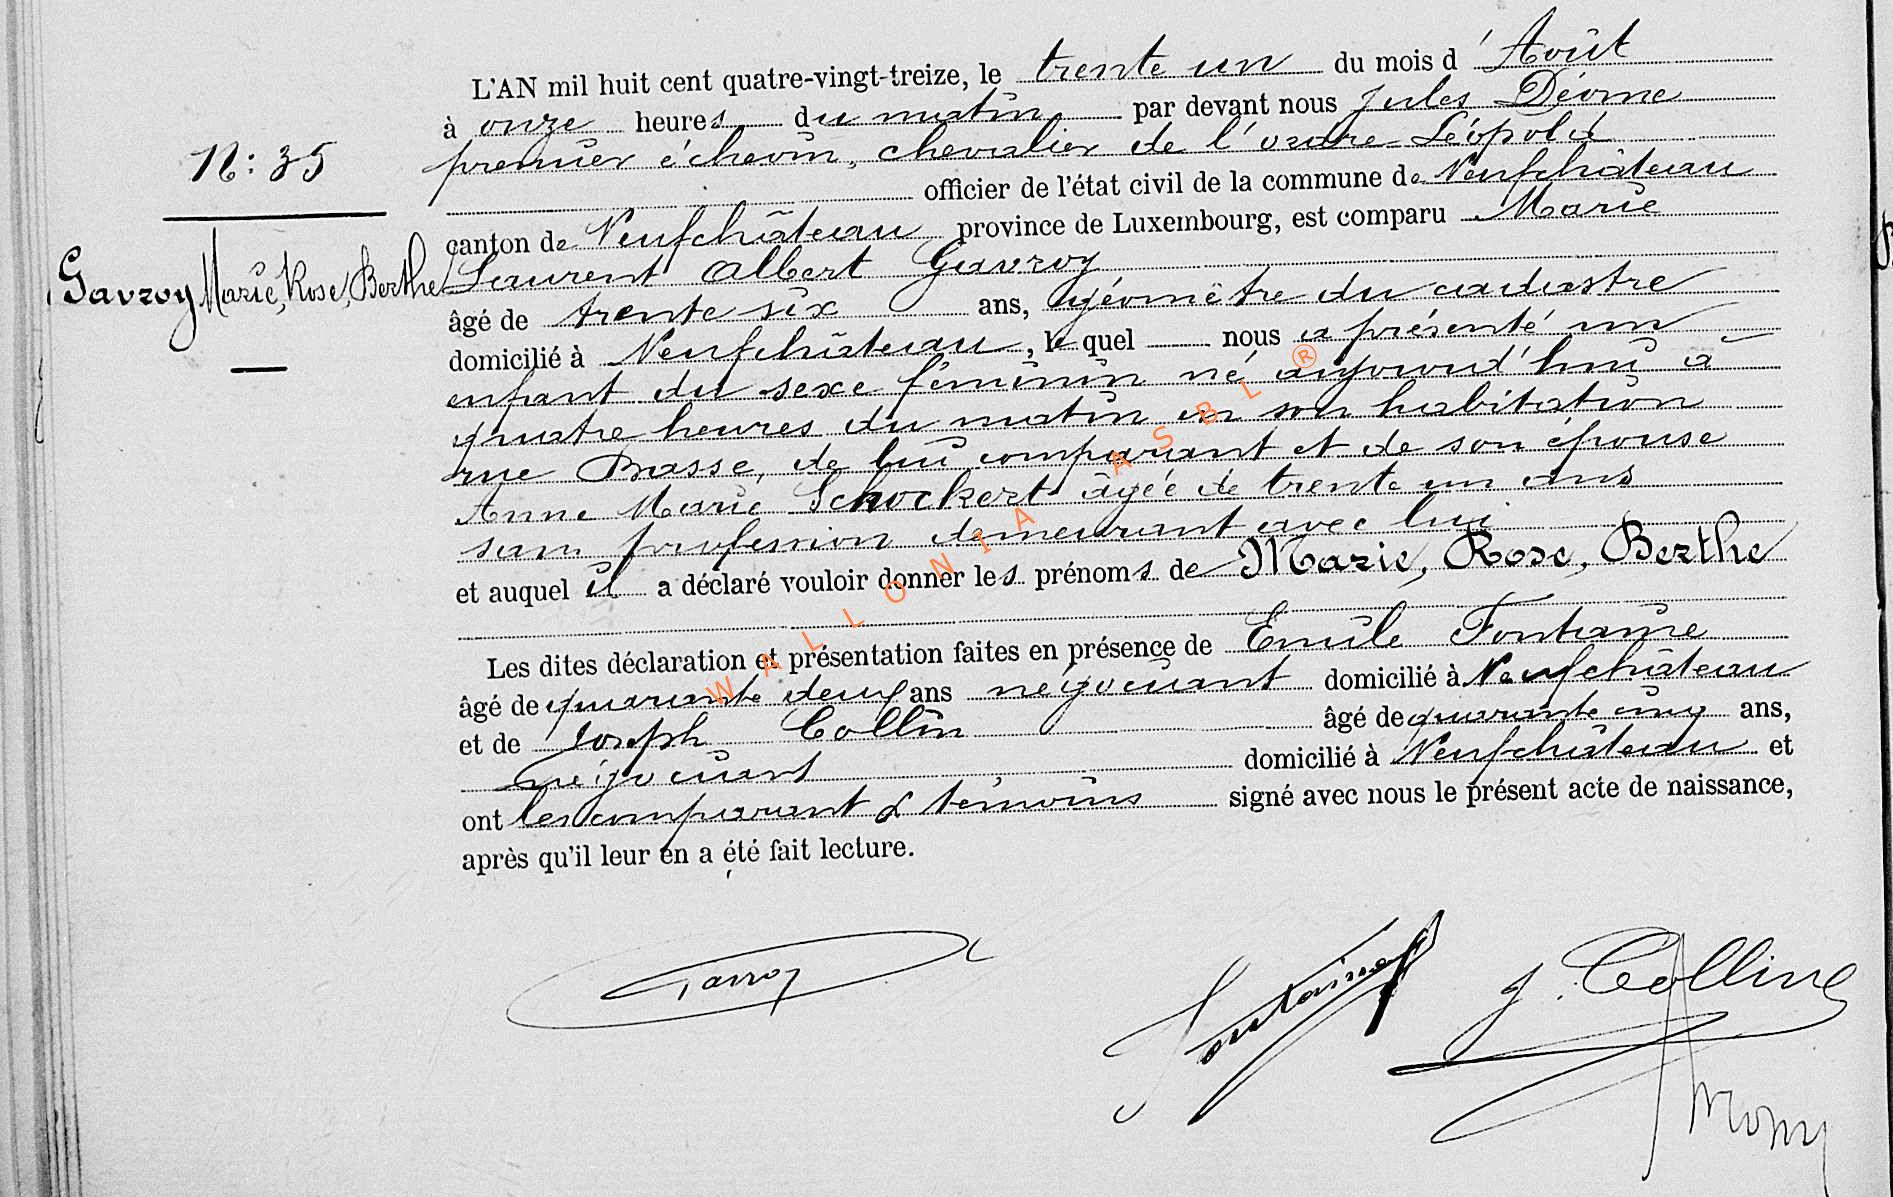 L'AN mil huit cent quatre-vingt-treize, le trente un du mois d'Août
à onze heures du matin par devant nous Jules Déome
premier échevin, chevalier de l'ordre Léopold
officier de l'état civil de la commune de Neufchâteau
canton de Neufchâteau province de Luxembourg, est comparu Marie
Laurent Albert Gavroy
âgé de trente six ans, géomètre du cadastre
domicilié à Neufchâteau, le quel nous a présenté un
enfant du sexe féminin né aujourd'hui à
quatre heures du matin en son habitation
rue Basse, de lui comparant et de son épouse
Anne Marie Schockert âgée de trente un ans
sans profession demeurant avec lui
et auquel il a déclaré vouloir donner les prénoms de Marie, Rose, Berthe
Les dites déclaration et présentation faites en présence de Emile Fontaine
âgé de quarante deux ans négociant domicilié à Neufchâteau
et de Joseph Collin âgé de quarante cinq ans,
négociant domicilié à Neufchâteau et
ont les comparant & témoins signé avec nous le présent acte de naissance,
après qu'il leur en a été fait lecture.
N: 35
Gavroy Marie, Rose, Berthe
WALLONIA ASBL ®
Gavroy
Fontaine
J. Collin